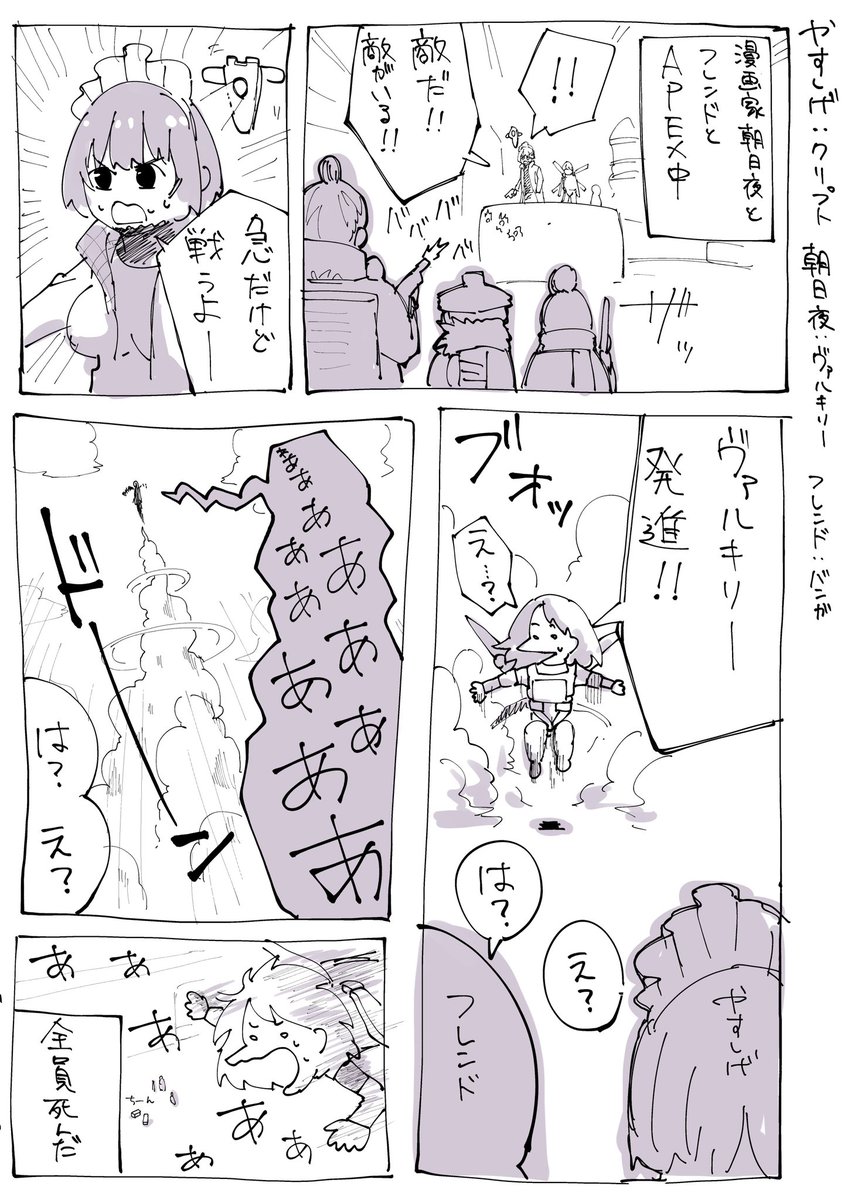 やすしげ:クリプト 朝日夜:ヴァルキリー フレンド:バンガ
漫画家朝日夜と
フレンドと
APEX中
!!
敵だ!!
敵がいる!!
ババババ
ザッ
急だけど
戦うよー
ヴァルキリー
発進!!
ブオッ
え…?
は?
え?
フレンド
やすしげ
ああああ
ああああ
あああああ
ドーン
は?
え?
ああ
あ
ああ
あ
ちーん
全員死んだ